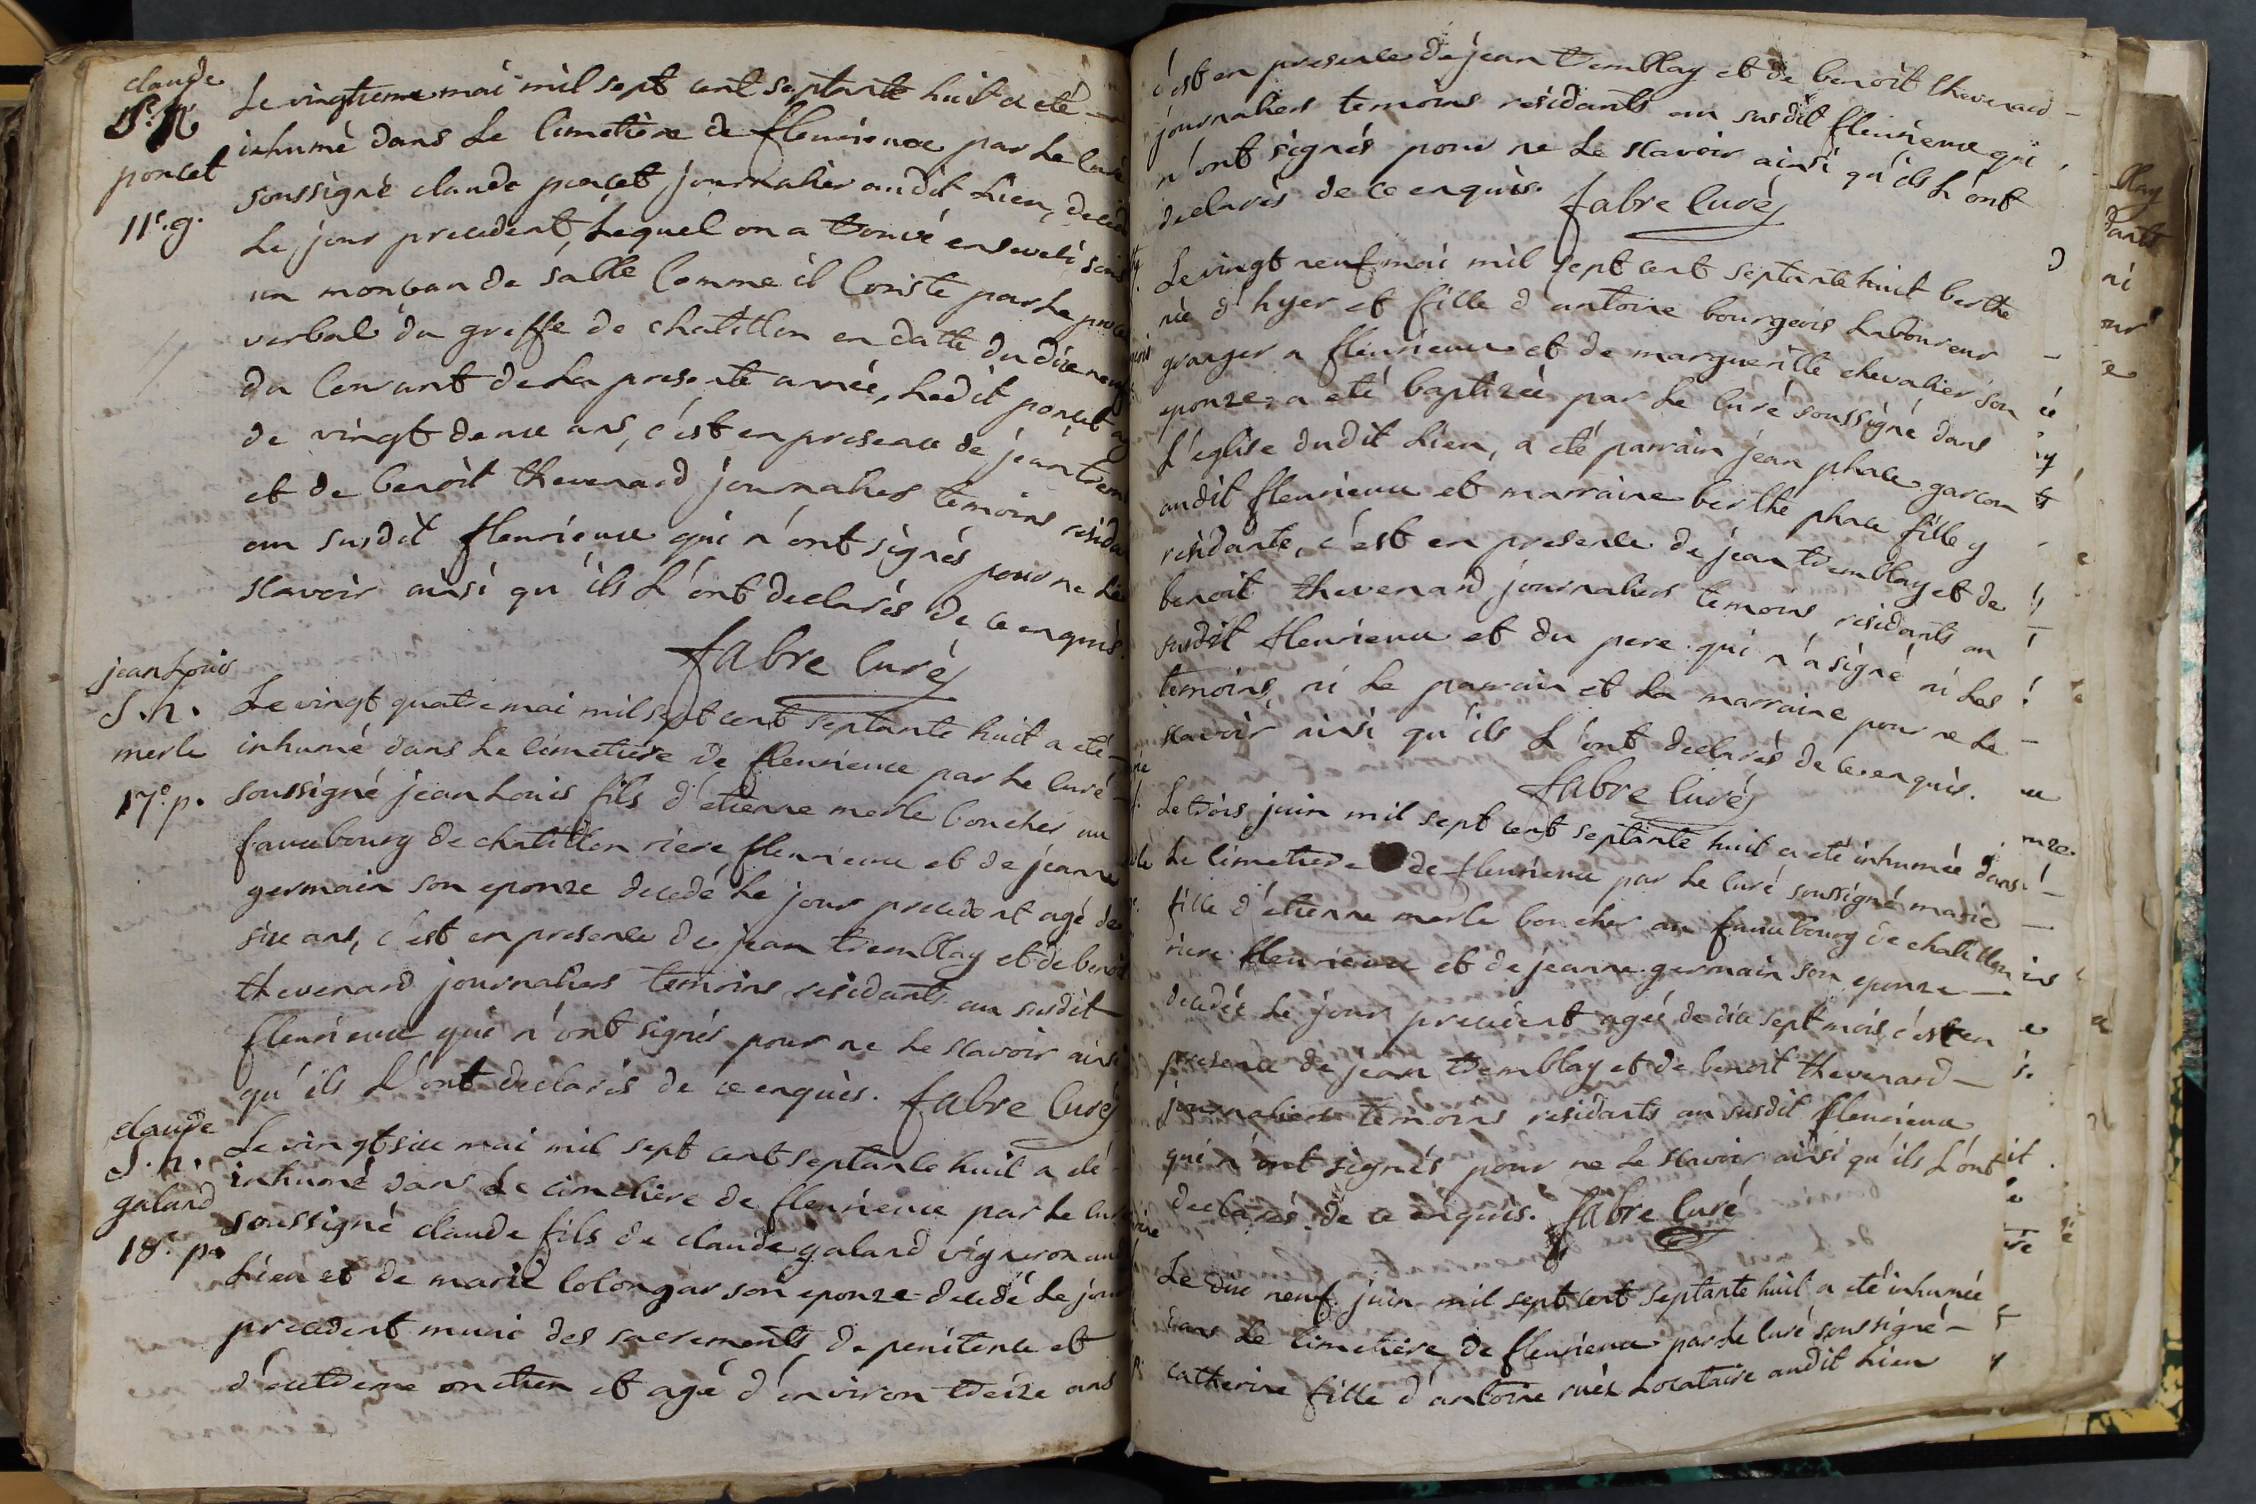 claude
S. N.
poncet
11e. g.
Le vingtieme mai mil sept cent septante huit a eté
inhumé dans Le cimetière de fleurieux par Le curé
soussigné claude poncet journalier audit Lieu, decedé
Le jour precedent, Lequel on a trouvé enseveli sous
un monçeau de sable comme il conste par Le proce
verbal du greffe de chatillon en datte du dixeneuf
du Courant de La presente année, Ledit poncet agé
de vingt deux ans, c'est en presence de jean trem
et de benoit thevenard journaliers temoins resida
au susdit fleurieux qui n'ont signés pour ne Le
scavoir ainsi qu'ils L'ont declarés de ce enquis.
fabre curé
jean Louis
S. n.
merle
17e. p.
Le vingt quatre mai mil sept cent septante huit a eté
inhumé dans Le cimetière de fleurieux par Le curé
soussigné jean Louis fils d'etienne merle boucher au
fauxbourg de chatillon riere fleurieux et de jeanne
germain son epouze decedé Le jour precedent agé de
six ans, c'est en presence de jean tremblay et de benoit
thevenard journaliers temoins residants au susdit
fleurieux qui n'ont signés pour ne Le scavoir ainsi
qu'ils L'ont declarés de ce enquis. fabre curé
claude
S. n.
galand
18e. p.
Le vingt six mai mil sept cent septante huit a eté
inhumé dans Le cimetière de fleurieux par Le curé
soussigné claude fils de claude galand vigneron au
Lieu et de marie colongar son epouze decedé Le jour
precedent muni des sacrements de penitence et
d'extreme onction et agé d'environ treize ans
c'est en presence de jean tremblay et de benoit thevenard
journaliers temoins residants au susdit fleurieux qui
n'ont signés pour ne Le scavoir ainsi qu'ils L'ont
declarés de ce enquis. fabre curé
Le vingt neuf mai mil sept cent septante huit berthe
née d'hyer et fille d'antoine bourgeois Laboureur
granger a fleurieux et de margueritte chevalier son
epouze a eté baptizée par Le curé soussigné dans
L'eglise dudit Lieu, a eté parrain jean phale garcon
audit fleurieux et marraine berthe phale fille y
residante, c'est en presence de jean tremblay et de
benoit thevenard journaliers temoins residants au
susdit fleurieux et du pere qui n'a signé ni Les
temoins, ni Le parrain et La marraine pour ne Le
scavoir ainsi qu'ils L'ont declarés de ce enquis.
fabre curé
Le trois juin mil sept cent septante huit a eté inhumée dans
Le cimetiere de fleurieux par Le curé soussigné marie
fille d'etienne merle boucher au fauxbourg de chatillon
riere fleurieux et de jeanne germain son epouze
decedée Le jour precedent agée de dix sept mois, c'est en
presence de jean tremblay et de benoit thevenard
journaliers temoins residants au susdit fleurieux
qui n'ont signés pour ne Le scavoir ainsi qu'ils L'ont
declarés de ce enquis. fabre curé
Le dix neuf juin mil sept cent septante huit a eté inhumée
dans Le cimetière de fleurieux par Le curé soussigné
catherine fille d'antoine Locataire audit Lieu